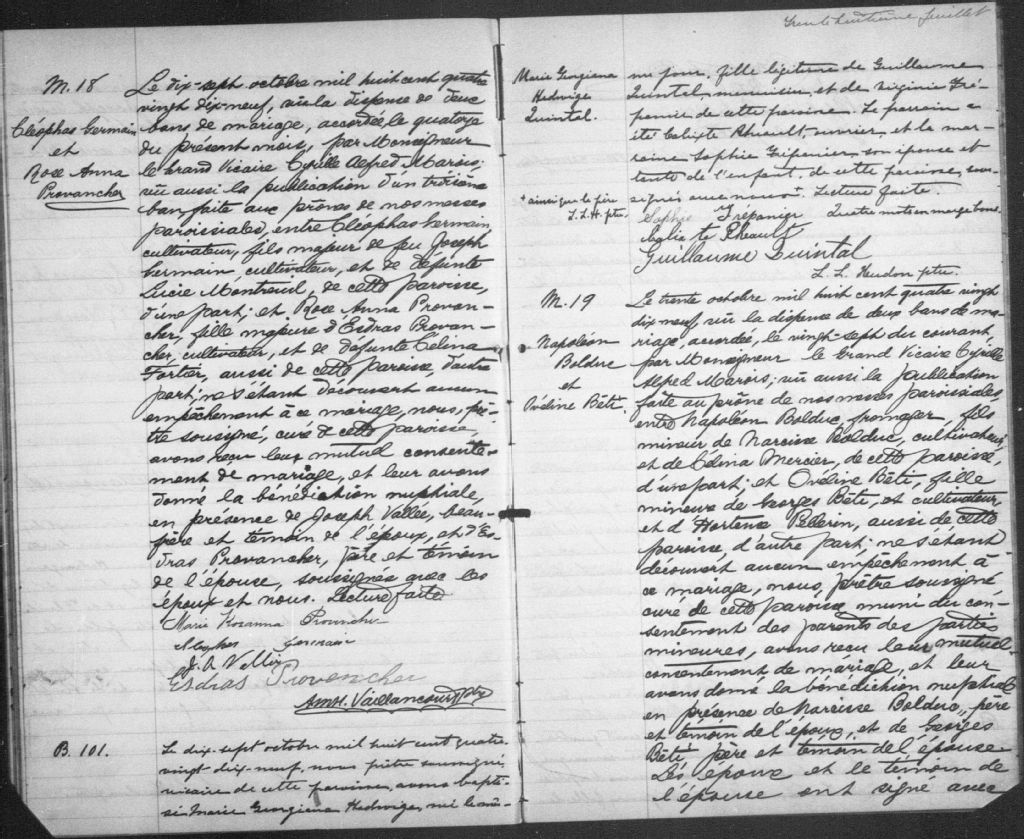 M. 18
Cléophas Germain
et
Rose Anna
Provancher
Le dix-sept octobre mil huit cent quatre
vingt dix-neuf, vu la dispense de deux
bans de mariage, accordée le quatorze
du présent mois, par Monseigneur
le Grand Vicaire Cyrille Alfred Marois;
vu aussi la publication d'un troisième
ban faite aux prônes de nos messes
paroissiales, entre Cléophas Germain
cultivateur, fils majeur de feu Joseph
Germain cultivateur, et de défunte
Lucie Montreuil, de cette paroisse,
d'une part; et Rose Anna Provan-
cher, fille majeure d'Esdras Provan-
cher, cultivateur, et de défunte Célina
Fortier, aussi de cette paroisse, d'autre
part; ne s'étant découvert aucun
empêchement à ce mariage, nous, prê-
tre soussigné, curé de cette paroisse,
avons reçu leur mutuel consente-
ment de mariage, et leur avons
donné la bénédiction nuptiale,
en présence de Joseph Vallée, beau-
père et témoin de l'époux, et d'Es-
dras Provancher, père et témoin
de l'épouse, soussignés avec les
époux et nous. Lecture faite
Marie Rosanna
Germain
J. A.
Esdras Provencher
Am. H. Vaillancourt ptre
B. 101.
Le dix-sept octobre mil huit cent quatre-
vingt-dix-neuf, nous prêtre soussigné,
vicaire de cette paroisse, avons bapti-
sé Marie Georgiana Hedwige, née le mê-
Trente huitième feuillet
Marie Georgiana
Hedwige
Quintal.
me jour, fille légitime de Guillaume
Quintal, menuisier, et de Virginie Tré-
panier de cette paroisse. Le parrain a
été Calixte Rhéault, ouvrier, et la mar-
raine Sophie Trépanier, son épouse et
tante de l'enfant, de cette paroisse, sous-
+ ainsi que le père
L. L. H. ptre.
signés avec nous+. Lecture faite.
Quatre mots en marge bons.
Sophie Trépanier
Rhéault
Guillaume Quintal
L. L. Heudon ptre.
M. 19
Napoléon
Bolduc
et
Ovéline Béti.
Le trente octobre mil huit cent quatre vingt
dix neuf, vu la dispense de deux bans de ma-
riage, accordée, le vingt-sept du courant,
par Monseigneur le Grand Vicaire Cyrille
Alfred Marois; vu aussi la publication
faite au prône de nos messes paroissiales
entre Napoléon Bolduc, fromager, fils
mineur de Narcisse Bolduc, cultivateur,
et de Célina Mercier, de cette paroisse,
d'une part; et Ovéline Béti, fille
mineure de Georges Béti, cultivateur,
et d'Hortense Pellerin, aussi de cette
paroisse, d'autre part; ne s'étant
découvert aucun empêchement à
ce mariage, nous, prêtre soussigné
curé de cette paroisse, muni du con-
sentement des parents des parties
mineures, avons reçu leur mutuel
consentement de mariage, et leur
avons donné la bénédiction nuptiale
en présence de Narcisse Bolduc, père
et témoin de l'époux, et de Georges
Béti père et témoin de l'épouse
Les époux et le témoin de
l'épouse ont signé avec